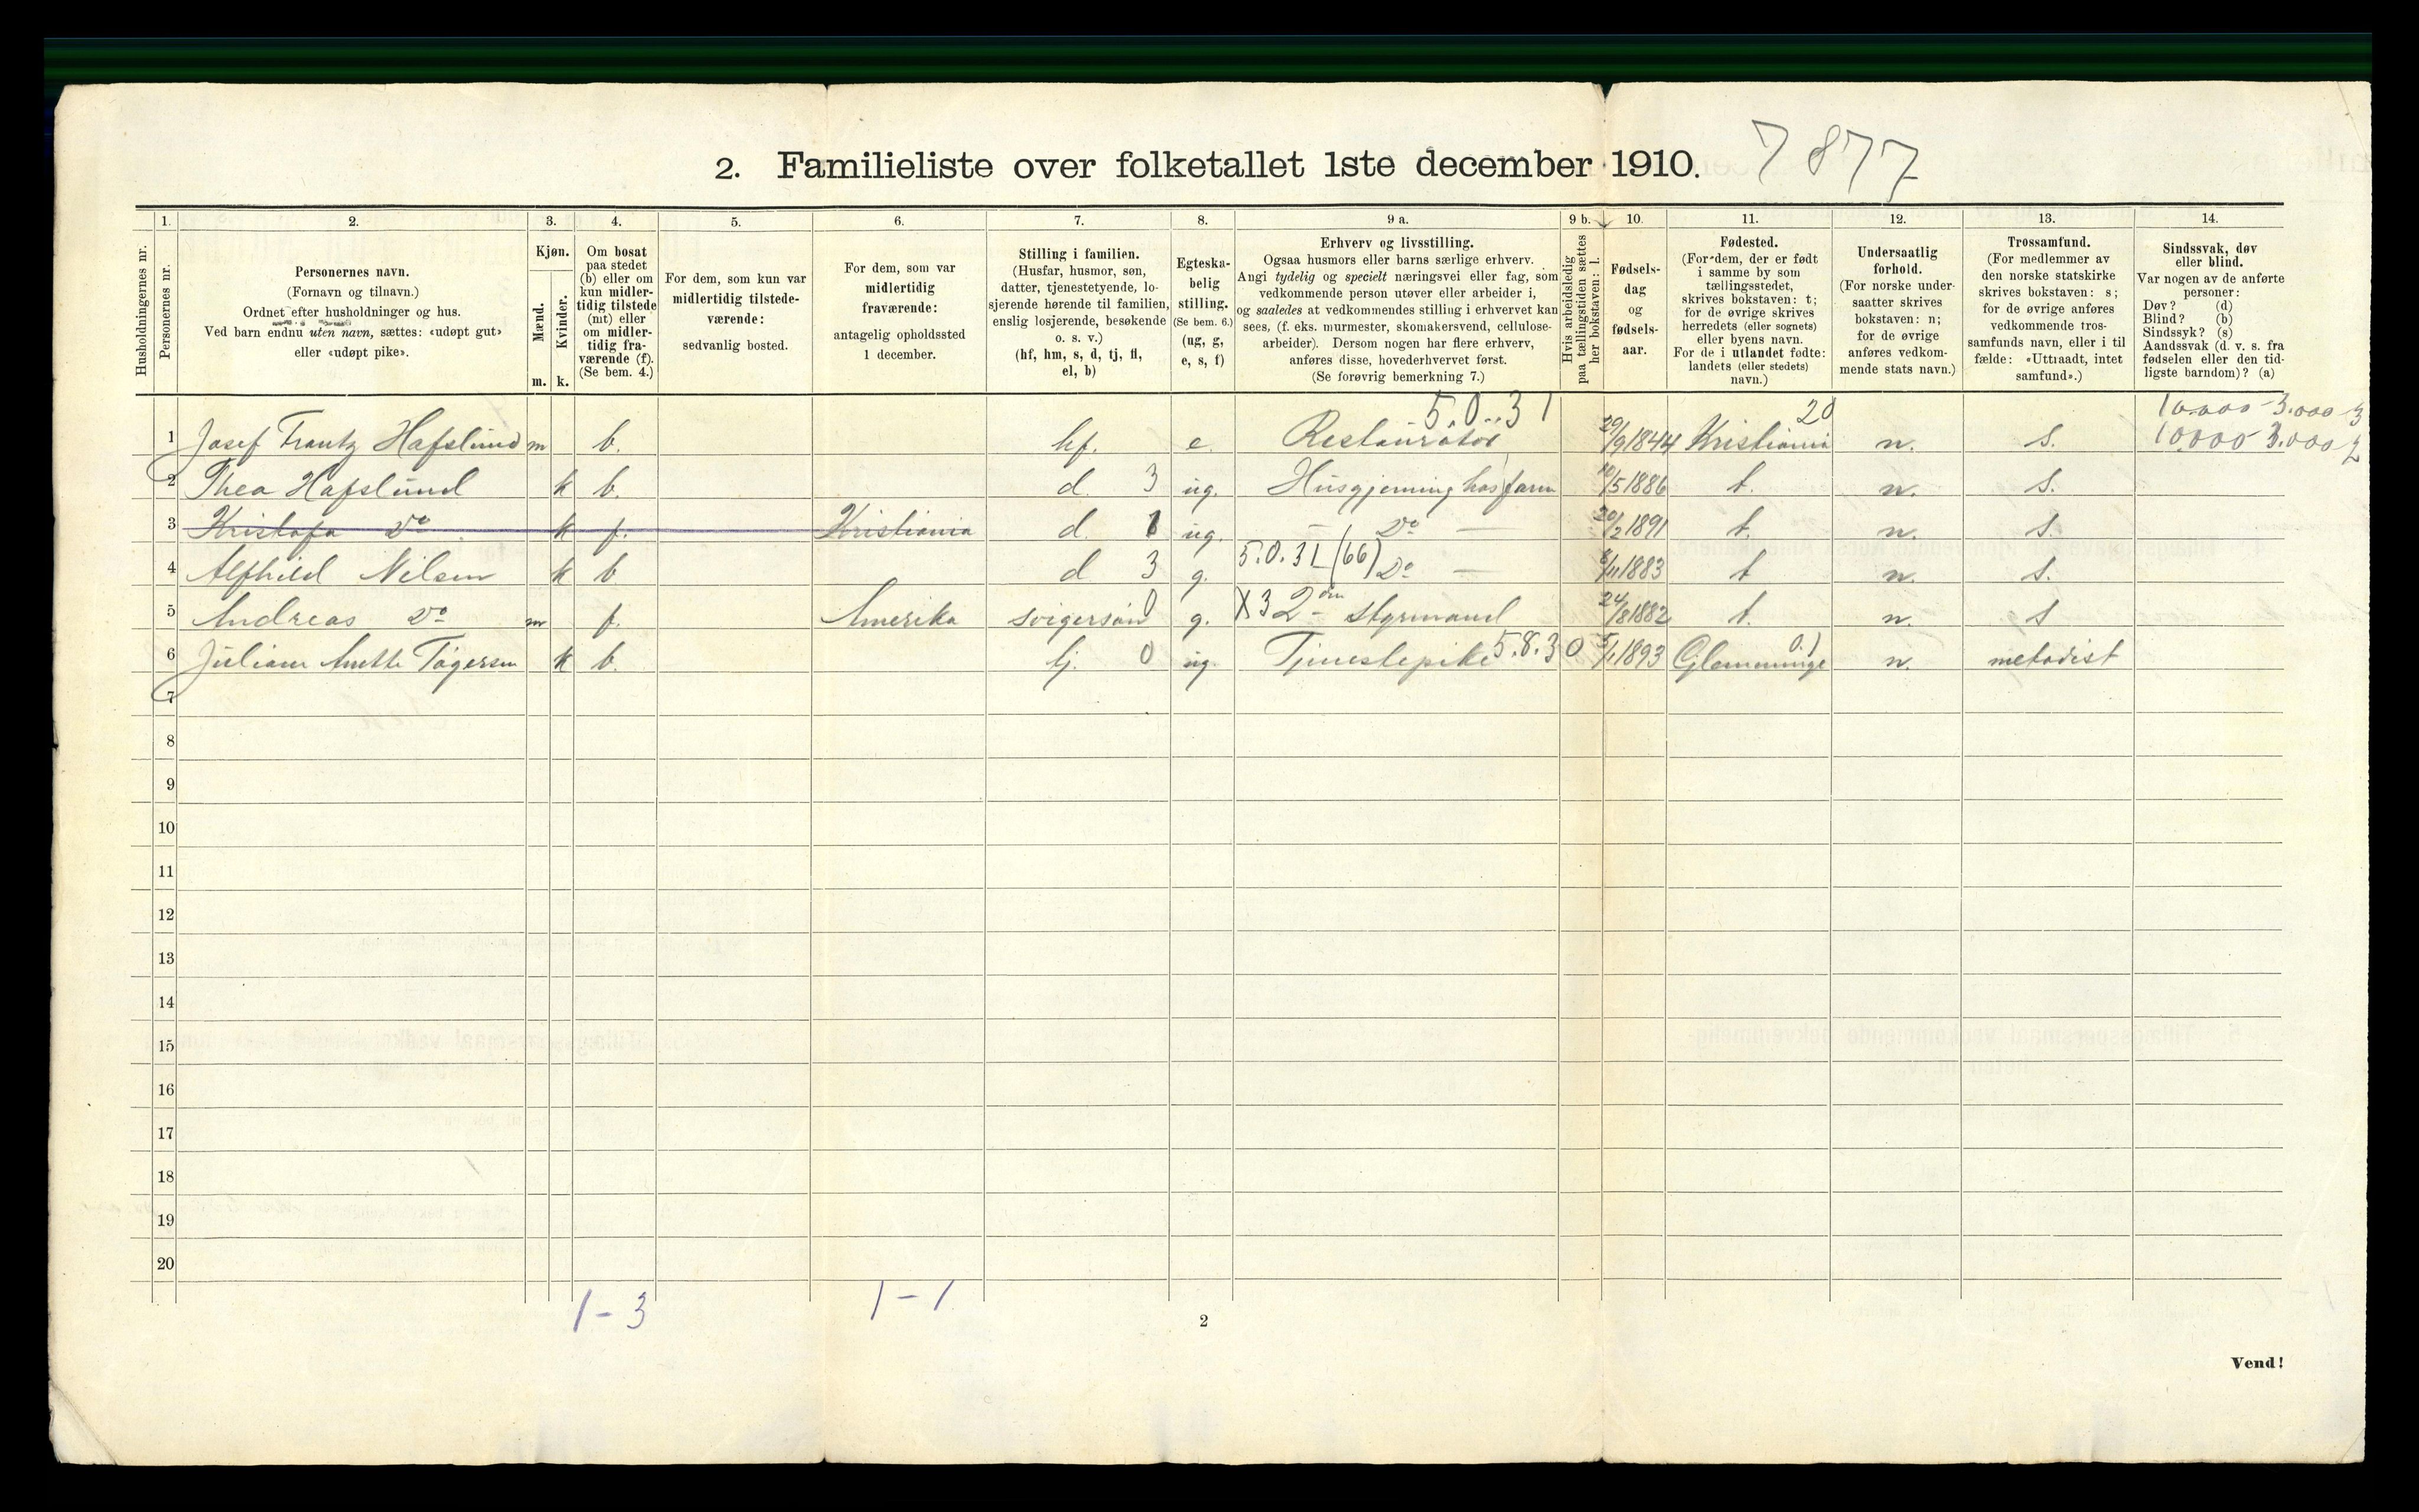 2. Familieliste over folketallet 1ste december 1910. 7877
1. 2. 3. 4. 5. 6. 7. 8. 9 a. 9 b. 10. 11. 12. 13. 14.
Husholdningernes nr.
Personernes nr.
Personernes navn.
(Fornavn og tilnavn.)
Ordnet efter husholdninger og hus.
Ved barn endnu uten navn, sættes: «udøpt gut»
eller «udøpt pike».
Kjøn.
Mænd.
m.
Kvinder.
k.
Om bosat
paa stedet
(b) eller om
kun midler-
tidig tilstede
(mt) eller
om midler-
tidig fra-
værende (f).
(Se bem. 4.)
For dem, som kun var
midlertidig tilstede-
værende:
sedvanlig bosted.
For dem, som var
midlertidig
fraværende:
antagelig opholdssted
1 december.
Stilling i familien.
(Husfar, husmor, søn,
datter, tjenestetyende, lo-
sjerende hørende til familien,
enslig losjerende, besøkende
o. s. v.)
(hf, hm, s, d, tj, fl,
el, b)
Egteska-
belig
stilling.
(Se bem. 6.)
(ug, g,
e, s, f)
Erhverv og livsstilling.
Ogsaa husmors eller barns særlige erhverv.
Angi tydelig og specielt næringsvei eller fag, som
vedkommende person utøver eller arbeider i,
og saaledes at vedkommendes stilling i erhvervet kan
sees, (f. eks. murmester, skomakersvend, cellulose-
arbeider). Dersom nogen har flere erhverv,
anføres disse, hovederhvervet først.
(Se forøvrig bemerkning 7.)
Hvis arbeidsledig
paa tællingstiden sættes
her bokstaven: l.
Fødsels-
dag
og
fødsels-
aar.
Fødested.
(For dem, der er født
i samme by som
tællingsstedet,
skrives bokstaven: t;
for de øvrige skrives
herredets (eller sognets)
eller byens navn.
For de i utlandet fødte:
landets (eller stedets)
navn.)
Undersaatlig
forhold.
(For norske under-
saatter skrives
bokstaven: n;
for de øvrige
anføres vedkom-
mende stats navn.)
Trossamfund.
(For medlemmer av
den norske statskirke
skrives bokstaven: s;
for de øvrige anføres
vedkommende tros-
samfunds navn, eller i til
fælde: «Uttraadt, intet
samfund».)
Sindssvak, døv
eller blind.
Var nogen av de anførte
personer:
Døv? (d)
Blind? (b)
Sindssyk? (s)
Aandssvak (d. v. s. fra
fødselen eller den tid-
ligste barndom)? (a)
5.0.31 20 10.000-3.000 3
1 Josef Frantz Hafslund m b. hf. e. Restauratør 29/9 1844 Kristiania n. s. 10.000 3.000 2
2 Thea Hafslund k b. d 3 ug. Husgjerning hos faren 10/5 1886 t. n. s.
3 Kristofa Do k f. Kristiania d 1 ug. — Do — 20/2 1891 t. n. s.
4 Alfhild Nilsen k b d 3 g. 5.0.31 (66) Do — 8/11 1883 t n. s.
5 Andreas Do m f. Amerika svigersøn 0 g. X32 den Styrmand 24/8 1882 t. n. s
6 Juliane Anette Tøgersen k b. tj. 0 ug. Tjenestepike 5.8.30 5/1 1893 Glemminge 01 n. metodist
7
8
9
10
11
12
13
14
15
16
17
18
19
20
1-3 1-1
2
Vend!